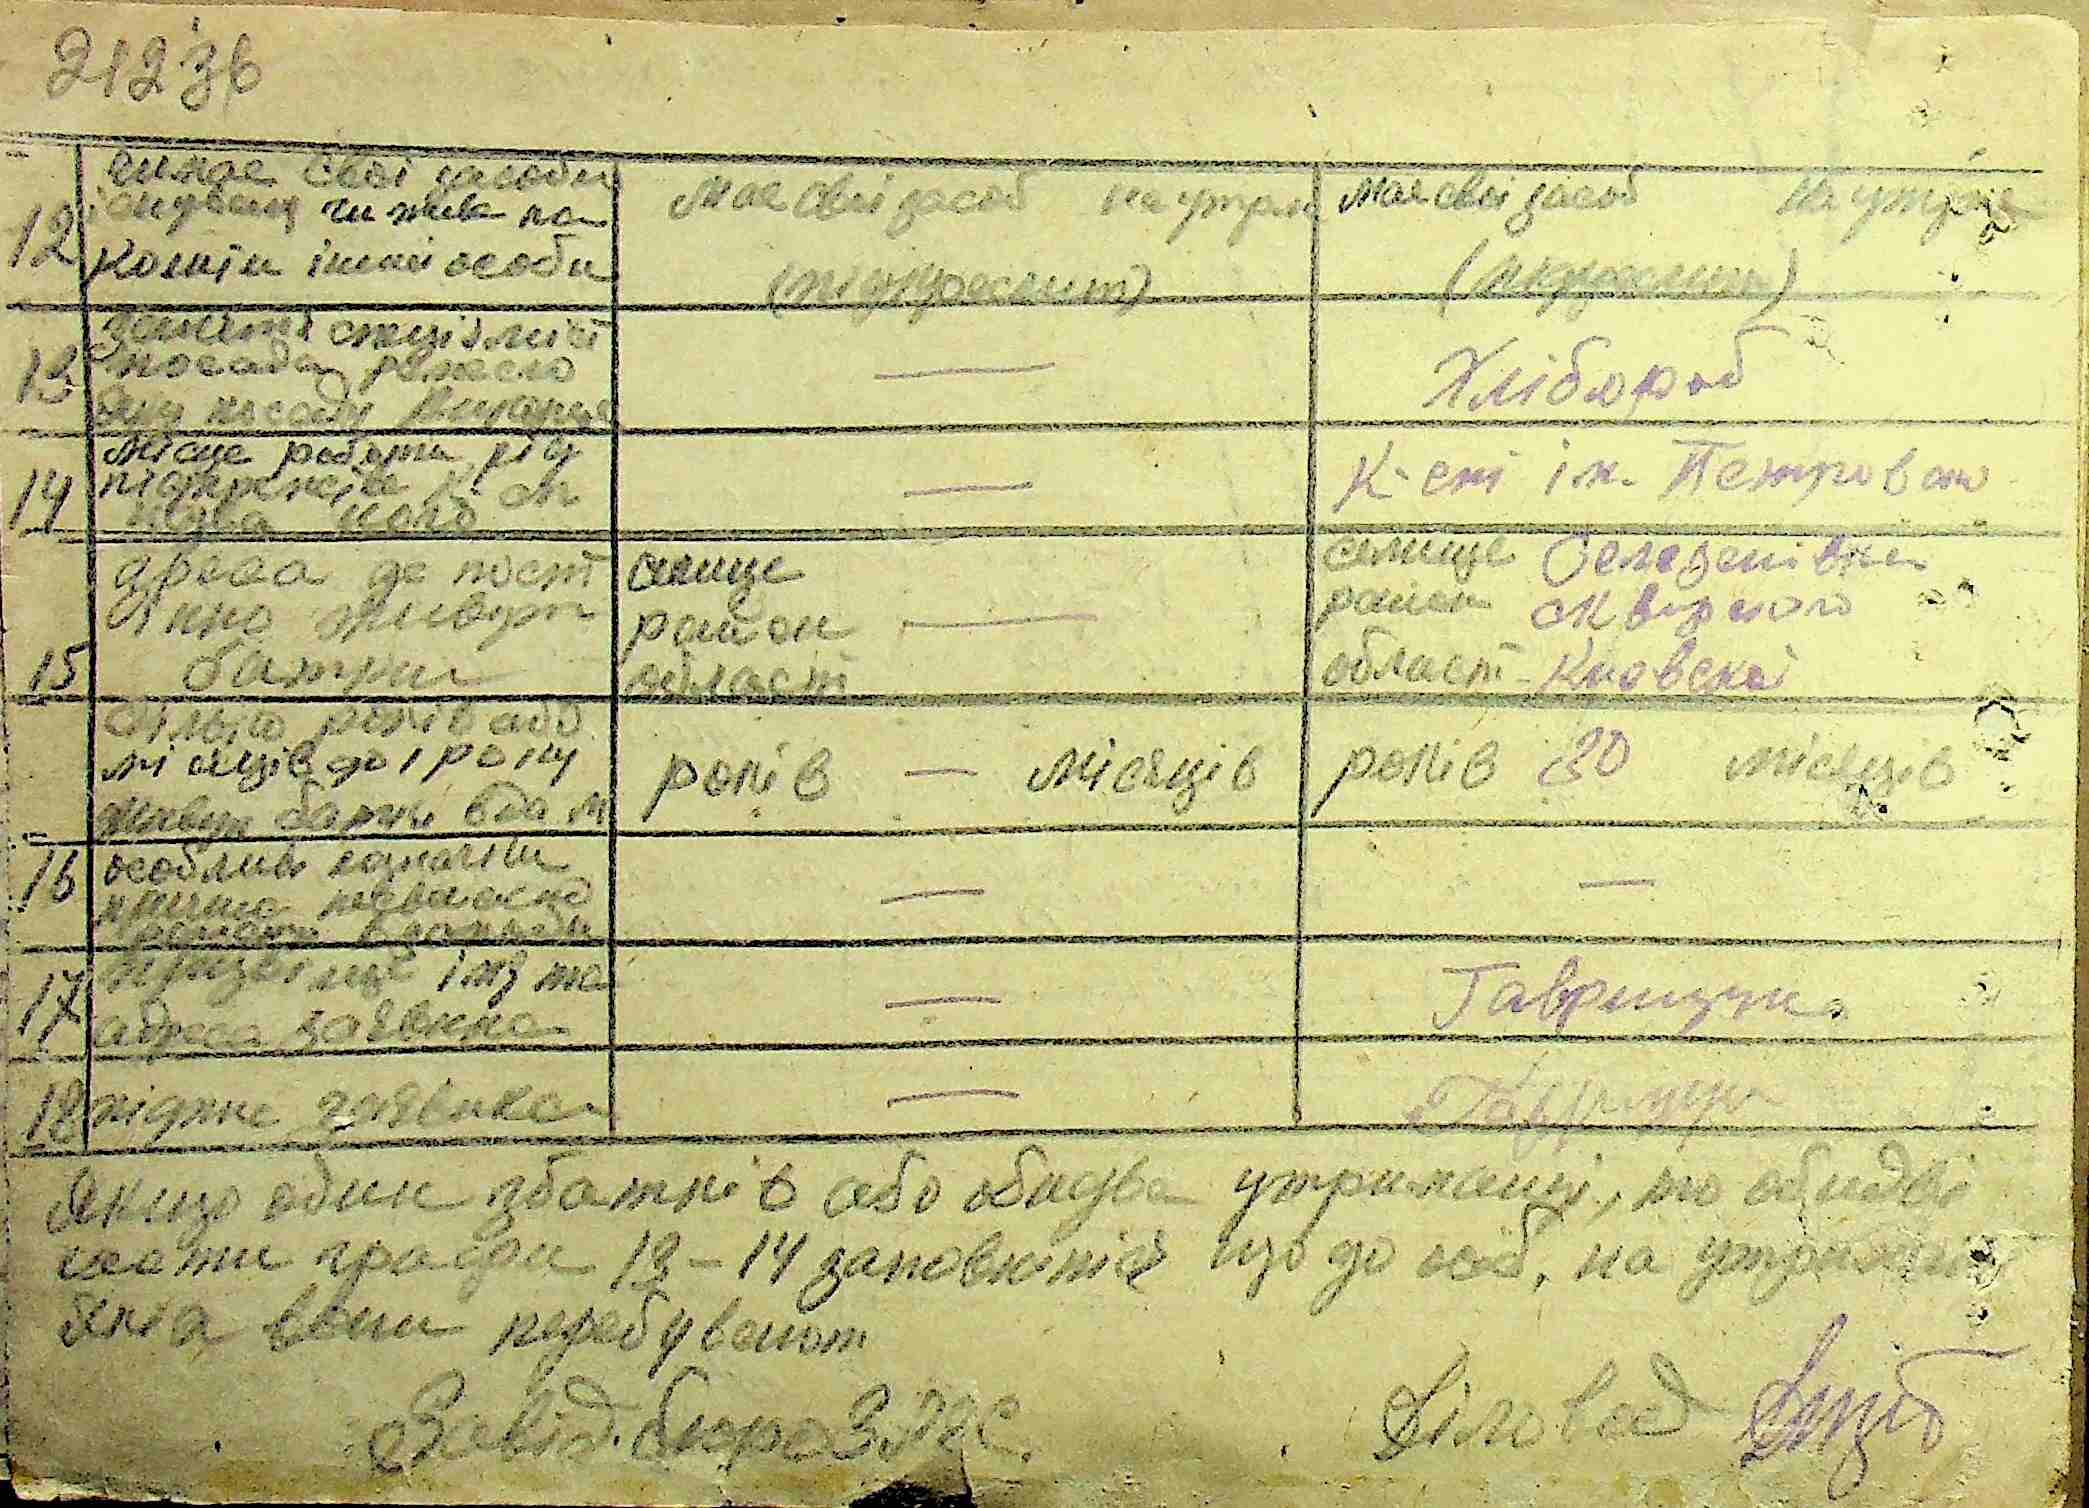 212 зв
12
чи має свої засоби
існування чи живе на
кошти іншої особи
має свої засоб на утрим
(підкреслит)
має свої засоб на утрим
(підкреслит)
13
заняття спеціяліст
посада ремесло
яку посаду виконує
—
Хлібороб
14
Місце роботи рід
підприємства К-ств
назва його
—
К-сті ім. Петровсько
15
адреса де пост
ійно живут
батьки
селище
район —
област
селище Селезенівка
район Сквирского
област Киівскої
скілько років або
місяців до 1 року
живут батьки в да м
років — місяців
років 30 місяців
16
особливі
—
—
17
прізвище імя та
адреса заявника
—
Гаврищук
18
підпис заявника
—
Гаврищук
Якщо один з батьків або обидва утриманці, то обидві
чи граф 13-14 заповнюється що до осіб, на утриман
яких вони перебувают
Завід. бюро ЗАГС
Діловод